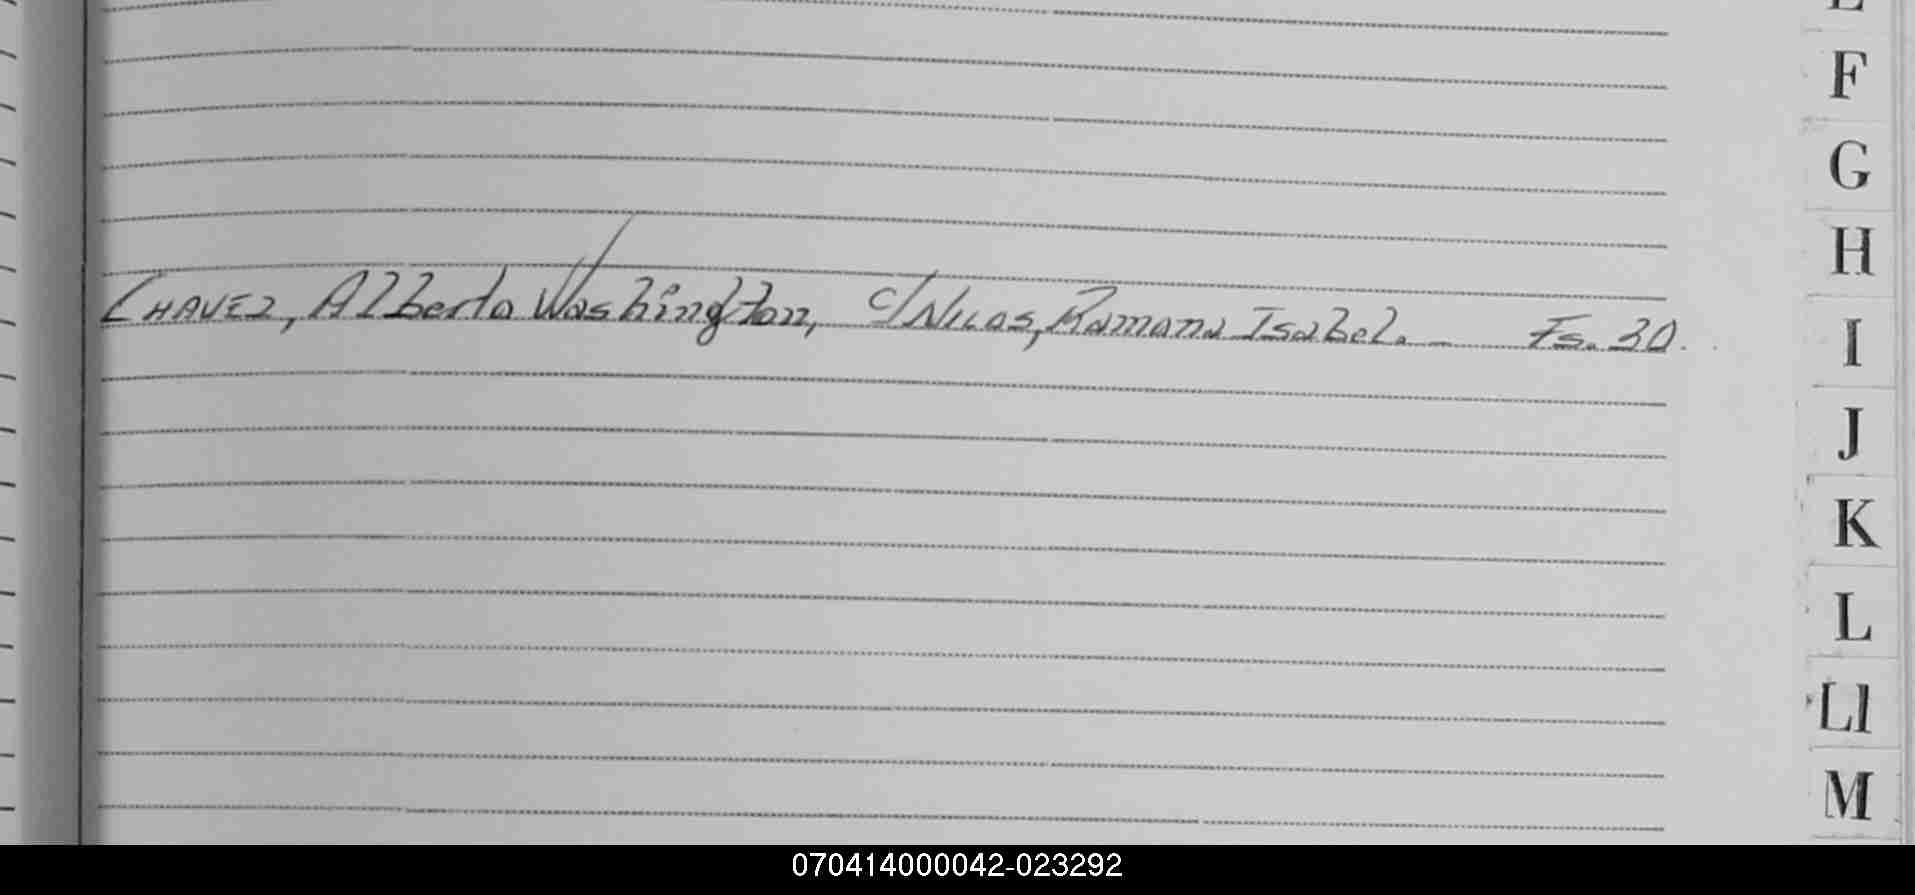 F
G
CHAVEZ, Alberto Washington, c/ Nicos, Ramona Isabel. - Fs. 30.
H
I
J
K
L
Ll
M
070414000042-023292